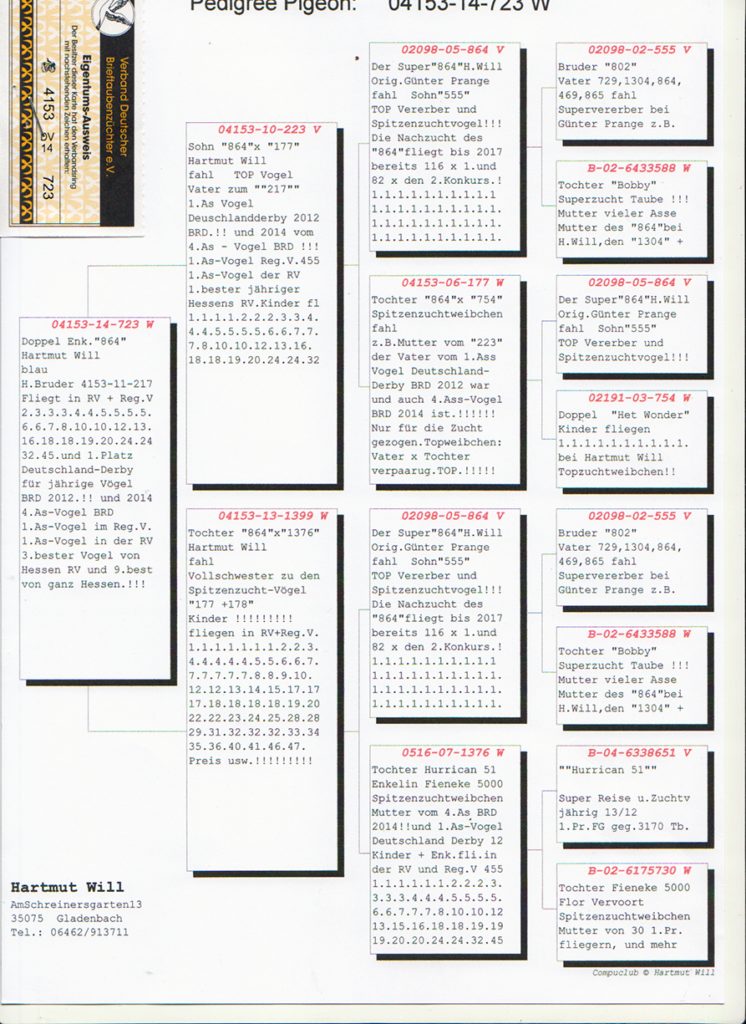 Pedigree Pigeon: 04153-14-723 W
Verband Deutscher
Brieftaubenzüchter e.V.
Eigentums-Ausweis
Der Besitzer dieser Karte hat den Verbandsring
mit nachstehenden Zeichen erhalten:
4153 14 723
04153-14-723 W
Doppel Enk."864"
Hartmut Will
blau
H.Bruder 4153-11-217
Fliegt in RV + Reg.V
2.3.3.3.4.4.5.5.5.5.
6.6.7.8.10.10.12.13.
16.18.18.19.20.24.24
32.45.und 1.Platz
Deutschland-Derby
für jährige Vögel
BRD 2012.!! und 2014
4.As-Vogel BRD
1.As-Vogel im Reg.V.
1.As-Vogel in der RV
3.bester Vogel von
Hessen RV und 9.best
von ganz Hessen.!!!
04153-10-223 V
Sohn "864"x "177"
Hartmut Will
fahl TOP Vogel
Vater zum ""217""
1.As Vogel
Deuschlandderby 2012
BRD.!! und 2014 vom
4.As - Vogel BRD !!!
1.As-Vogel Reg.V.455
1.As-Vogel der RV
1.bester jähriger
Hessens RV.Kinder fl
1.1.1.1.2.2.2.3.3.4.
4.4.5.5.5.5.6.6.7.7.
7.8.10.10.12.13.16.
18.18.19.20.24.24.32
04153-13-1399 W
Tochter "864"x"1376"
Hartmut Will
fahl
Vollschwester zu den
Spitzenzucht-Vögel
"177 +178"
Kinder !!!!!!!!!
fliegen in RV+Reg.V.
1.1.1.1.1.1.1.2.2.3.
4.4.4.4.4.5.5.6.6.7.
7.7.7.7.7.8.8.9.10.
12.12.13.14.15.17.17
17.18.18.18.18.19.20
22.22.23.24.25.28.28
29.31.32.32.32.33.34
35.36.40.41.46.47.
Preis usw.!!!!!!!!!
02098-05-864 V
Der Super"864"H.Will
Orig.Günter Prange
fahl Sohn"555"
TOP Vererber und
Spitzenzuchtvogel!!!
Die Nachzucht des
"864"fliegt bis 2017
bereits 116 x 1.und
82 x den 2.Konkurs.!
1.1.1.1.1.1.1.1.1.1
1.1.1.1.1.1.1.1.1.1.
1.1.1.1.1.1.1.1.1.1.
1.1.1.1.1.1.1.1.1.1.
04153-06-177 W
Tochter "864"x "754"
Spitzenzuchtweibchen
fahl
z.B.Mutter vom "223"
der Vater vom 1.Ass
Vogel Deutschland-
Derby BRD 2012 war
und auch 4.Ass-Vogel
BRD 2014 ist.!!!!!!
Nur für die Zucht
gezogen.Topweibchen:
Vater x Tochter
verpaarug.TOP.!!!!!
02098-05-864 V
Der Super"864"H.Will
Orig.Günter Prange
fahl Sohn"555"
TOP Vererber und
Spitzenzuchtvogel!!!
Die Nachzucht des
"864"fliegt bis 2017
bereits 116 x 1.und
82 x den 2.Konkurs.!
1.1.1.1.1.1.1.1.1.1
1.1.1.1.1.1.1.1.1.1.
1.1.1.1.1.1.1.1.1.1.
1.1.1.1.1.1.1.1.1.1.
0516-07-1376 W
Tochter Hurrican 51
Enkelin Fieneke 5000
Spitzenzuchtweibchen
Mutter vom 4.As BRD
2014!!und 1.As-Vogel
Deutschland Derby 12
Kinder + Enk.fli.in
der RV und Reg.V 455
1.1.1.1.1.1.2.2.2.3.
3.3.3.4.4.4.5.5.5.5.
6.6.7.7.7.8.10.10.12
13.15.16.18.18.19.19
19.20.20.24.24.32.45
02098-02-555 V
Bruder "802"
Vater 729,1304,864,
469,865 fahl
Supervererber bei
Günter Prange z.B.
B-02-6433588 W
Tochter "Bobby"
Superzucht Taube !!!
Mutter vieler Asse
Mutter des "864"bei
H.Will,den "1304" +
02098-05-864 V
Der Super"864"H.Will
Orig.Günter Prange
fahl Sohn"555"
TOP Vererber und
Spitzenzuchtvogel!!!
02191-03-754 W
Doppel "Het Wonder"
Kinder fliegen
1.1.1.1.1.1.1.1.1.1.
bei Hartmut Will
Topzuchtweibchen!!
02098-02-555 V
Bruder "802"
Vater 729,1304,864,
469,865 fahl
Supervererber bei
Günter Prange z.B.
B-02-6433588 W
Tochter "Bobby"
Superzucht Taube !!!
Mutter vieler Asse
Mutter des "864"bei
H.Will,den "1304" +
B-04-6338651 V
""Hurrican 51""
Super Reise u.Zuchtv
jährig 13/12
1.Pr.FG geg.3170 Tb.
B-02-6175730 W
Tochter Fieneke 5000
Flor Vervoort
Spitzenzuchtweibchen
Mutter von 30 1.Pr.
fliegern, und mehr
Hartmut Will
AmSchreinersgarten13
35075 Gladenbach
Tel.: 06462/913711
Compuclub © Hartmut Will